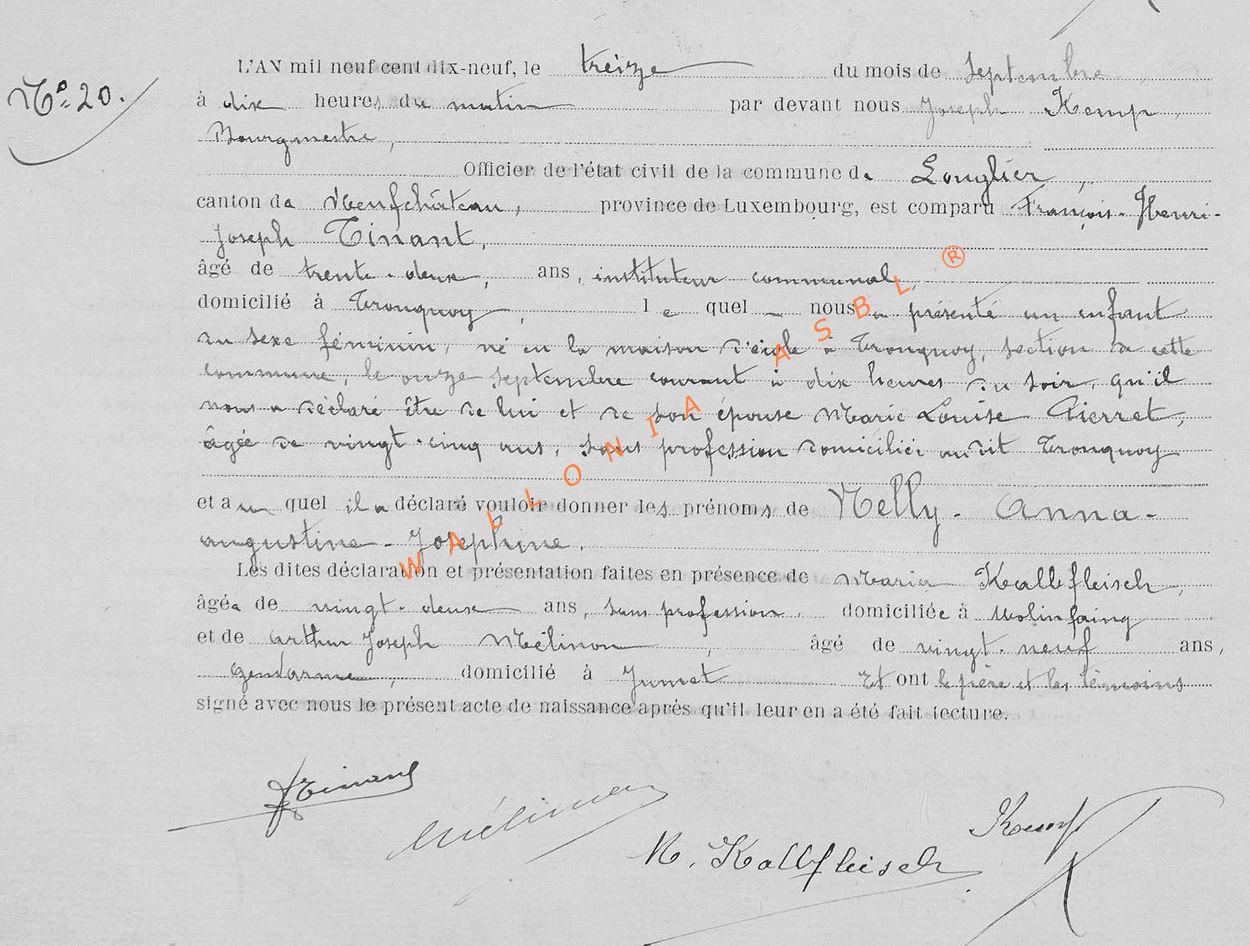 N° 20.
L'AN mil neuf cent dix-neuf, le treize du mois de septembre
à dix heures du matin par devant nous Joseph Kemp,
Bourgmestre,
Officier de l'état civil de la commune de Longlier,
canton de Neufchâteau, province de Luxembourg, est comparu François-Henri-
Joseph Tinant,
âgé de trente-deux, ans, instituteur communal,
domicilié à Tronquoy, le quel nous a présenté un enfant
du sexe féminin, né en la maison d'école à Tronquoy, section de cette
commune, le onze septembre courant à dix heures du soir, qu'il
nous a déclaré être de lui et de son épouse Marie Louise Pierret,
âgée de vingt-cinq ans, sans profession domiciliée au dit Tronquoy
et au quel il a déclaré vouloir donner les prénoms de Nelly-Anna-
Augustine-Joséphine.
Les dites déclaration et présentation faites en présence de Maria Kallfleisch,
âgée de vingt-deux ans, sans profession, domiciliée à Molinfaing
et de Arthur Joseph Mélinon, âgé de vingt-neuf ans,
gendarme, domicilié à Jumet Et ont le père et les témoins
signé avec nous le présent acte de naissance après qu'il leur en a été fait lecture.
WALLONIA ASBL ®
Tinant
Mélinon
M. Kallfleisch
Kemp